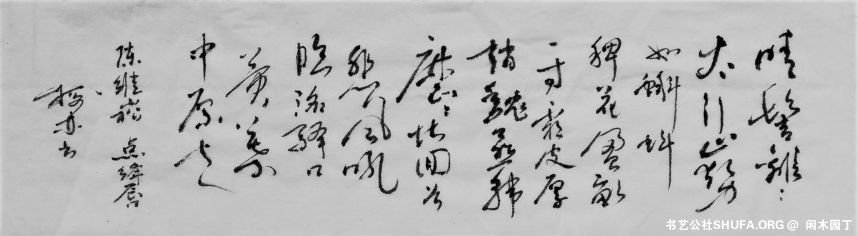 晴髻離離
太行山勢
如蝌蚪
稗花盈畝
一寸霜皮厚
趙魏燕韩
歷歷堪回首
悲风吼
临洺驿口
黄葉
中原走
陈维崧 点绛唇
书艺公社SHUFA.ORG @ 闲木园丁